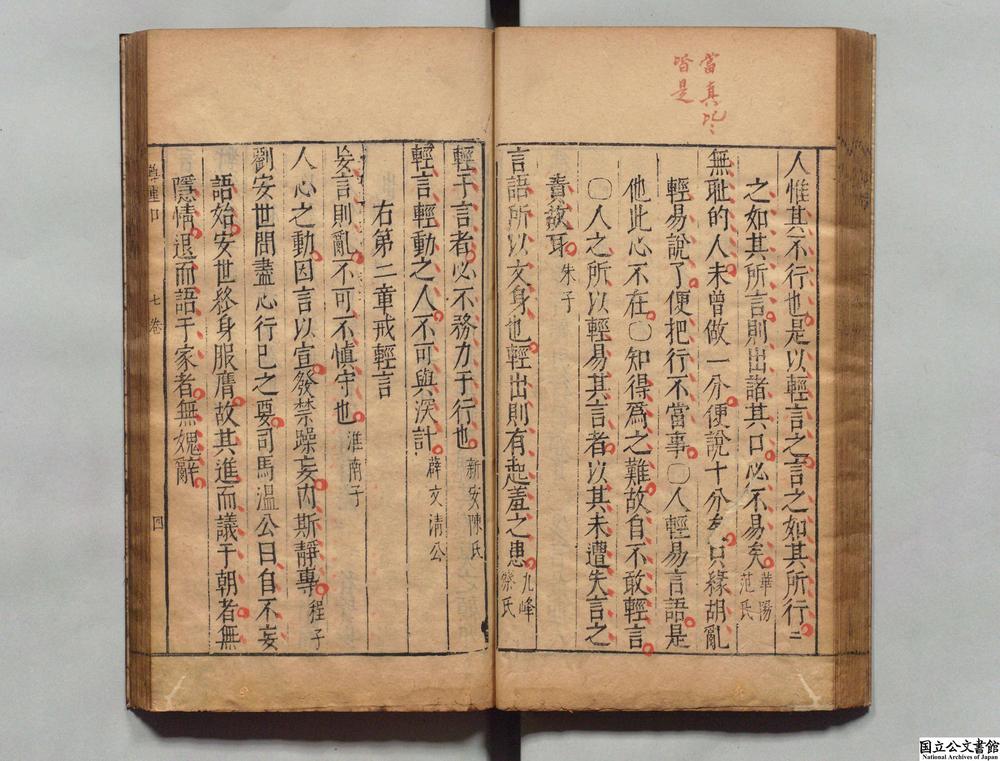 當真
皆是
人惟其不行也是以輕言之言之如其所行行
之如其所言則出諸其口必不易矣 華陽范氏
無恥的人未曾做一分便說十分矣只緣胡亂
輕易說了便把行不當事〇人輕易言語是
他此心不在〇知得爲之難故自不敢輕言
〇人之所以輕易其言者以其未遭失言之
責故耳 朱子
言語所以文身也輕出則有起羞之患 九峰蔡氏
輕于言者必不務力于行也 新安陳氏
輕言輕動之人不可與深計 薛文清公
右第二章戒輕言
妄言則亂不可不慎守也 淮南子
人心之動因言以宣發禁躁妄內斯靜專 程子
劉安世問盡心行己之要司馬溫公曰自不妄
語始安世終身服膺故其進而議于朝者無
隱情退而語于家者無媿辭
七卷
四
国立公文書館
National Archives of Japan